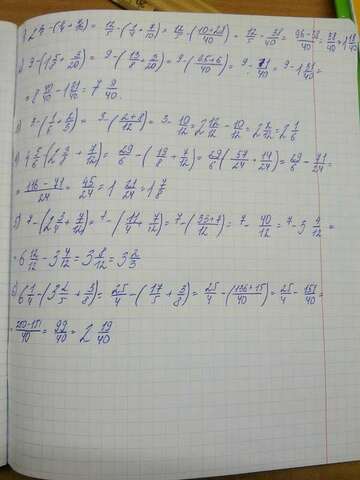 1) 2 2/5 - (1/4 + 7/10) = 12/5 - (1/4 + 7/10) = 12/5 - (10+28/40) = 12/5 - 38/40 = 96-38/40 = 58/40 = 1 18/40
2) 9 - (1 5/8 + 3/20) = 9 - (13/8 + 3/20) = 9 - (65+6/40) = 9 - 71/40 = 9 - 1 31/40 =
= 8 40/40 - 1 31/40 = 7 9/40.
3 - (1/6 + 2/3) = 3 - (2+8/12) = 3 - 10/12 = 2 12/12 - 10/12 = 2 2/12 = 2 1/6
4) 4 5/6 - (2 3/8 + 7/12) = 29/6 - (19/8 + 7/12) = 29/6 - (57/24 + 14/24) = 29/6 - 71/24 =
= 116-71/24 = 45/24 = 1 21/24 = 1 7/8
5) 7 - (2 3/4 + 7/12) = 7 - (11/4 + 7/12) = 7 - (33+7/12) = 7 - 40/12 = 7 - 3 4/12 =
= 6 12/12 - 3 4/12 = 3 8/12 = 3 2/3
6) 6 1/4 - (3 2/5 + 3/8) = 25/4 - (17/5 + 3/8) = 25/4 - (136+15/40) = 25/4 - 151/40 =
= 250-151/40 = 99/40 = 2 19/40